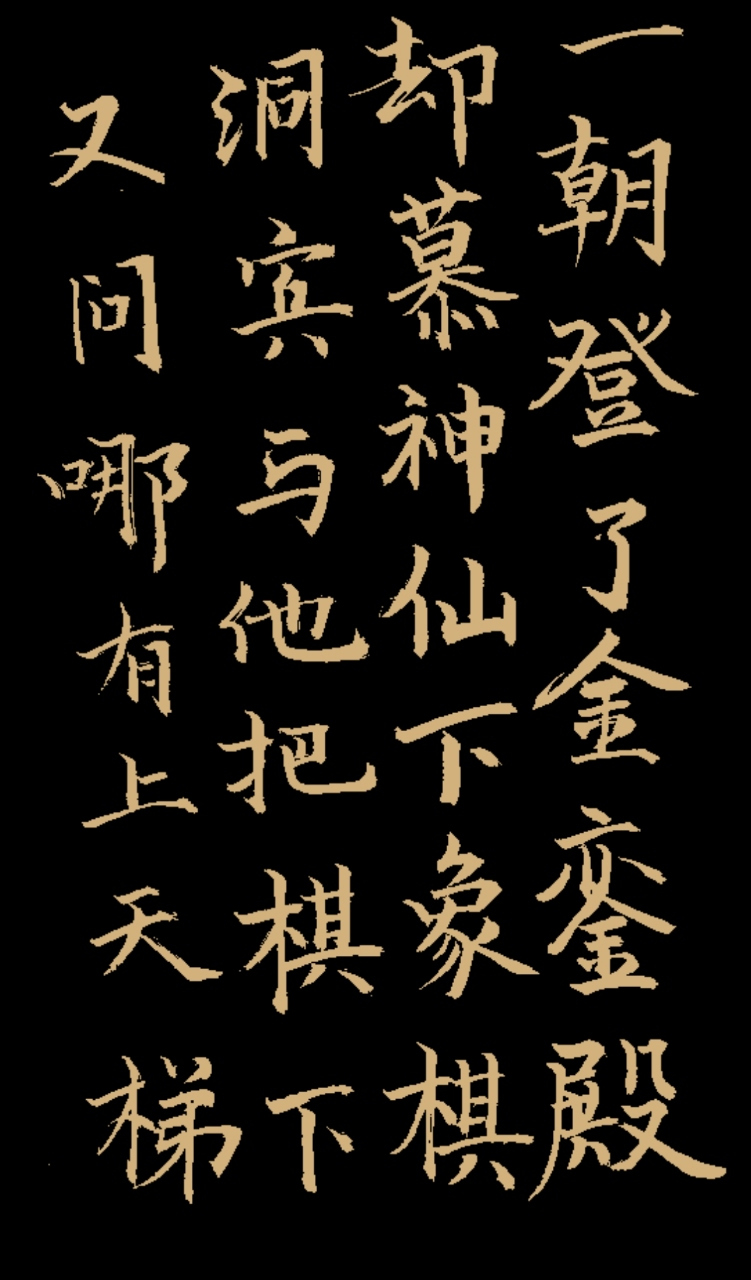 一朝登了金銮殿
却慕神仙下象棋
洞宾与他把棋下
又问哪有上天梯